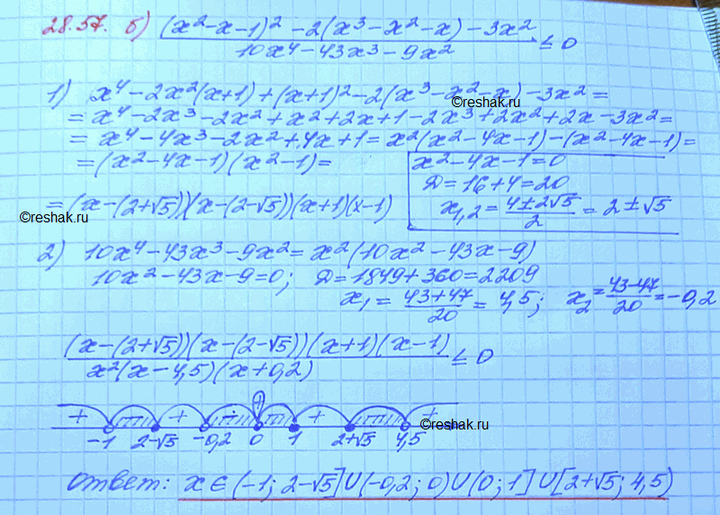 28.57. б) (x²-x-1)² -2(x³-x²-x)-3x² / 10x⁴-43x³-9x² ≤0
1) x⁴-2x²(x+1)+(x+1)²-2(x³-x²-x)-3x²=
©reshak.ru
=x⁴-2x³-2x²+x²+2x+1-2x³+2x²+2x-3x²=
=x⁴-4x³-2x²+4x+1=x²(x²-4x-1)-(x²-4x-1)=
=(x²-4x-1)(x²-1)=
x²-4x-1=0
Д=16+4=20
x₁,₂=4±2√5/2=2±√5
=(x-(2+√5))(x-(2-√5))(x+1)(x-1)
©reshak.ru
2) 10x⁴-43x³-9x²=x²(10x²-43x-9)
10x²-43x-9=0; Д=1849+360=2209
x₁=43+47/20=4,5; x₂=43-47/20=-0,2
(x-(2+√5))(x-(2-√5))(x+1)(x-1) / x²(x-4,5)(x+0,2) ≤0
©reshak.ru
+ + + +
-1 2-√5 -0,2 0 1 2+√5 4,5
©reshak.ru
Ответ: x∈(-1; 2-√5]∪(-0,2; 0)∪(0; 1]∪[2+√5; 4,5)